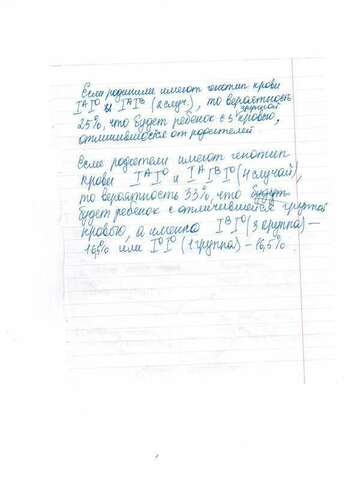 Если родители имеют генотип крови
IᴬI⁰ и IᴬIᴮ (2 случ.), то вероятность
25%, что будет ребенок с 3 группой
кровью,
отличившейся от родителей.
Если родители имеют генотип
крови IᴬI⁰ и IᴬIᴮI⁰ (4 случай),
то вероятность 33%, что будут
будет ребенок с отличившейся группой
кровью, а именно IᴮI⁰ (3 группа) –
16,5% или I⁰I⁰ (1 группа) – 16,5%